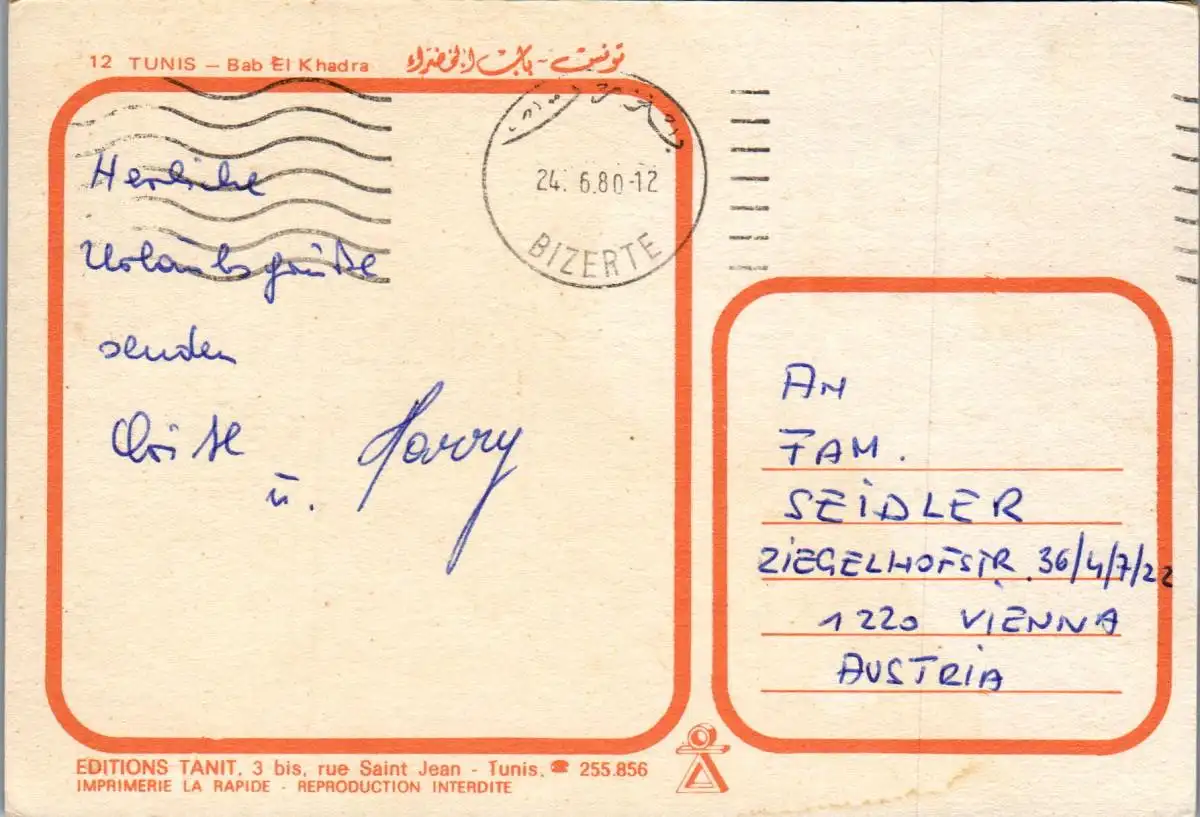 12 TUNIS – Bab El Khadra تونس - باب الخضراء
24. 6.80-12
BIZERTE
Herzliche
Urlaubsgrüße
senden
u. Harry
AN
FAM.
SEIDLER
ZIEGELHOFSTR. 36/4/7/22
1220 VIENNA
AUSTRIA
EDITIONS TANIT. 3 bis, rue Saint Jean - Tunis. ☎ 255.856
IMPRIMERIE LA RAPIDE - REPRODUCTION INTERDITE